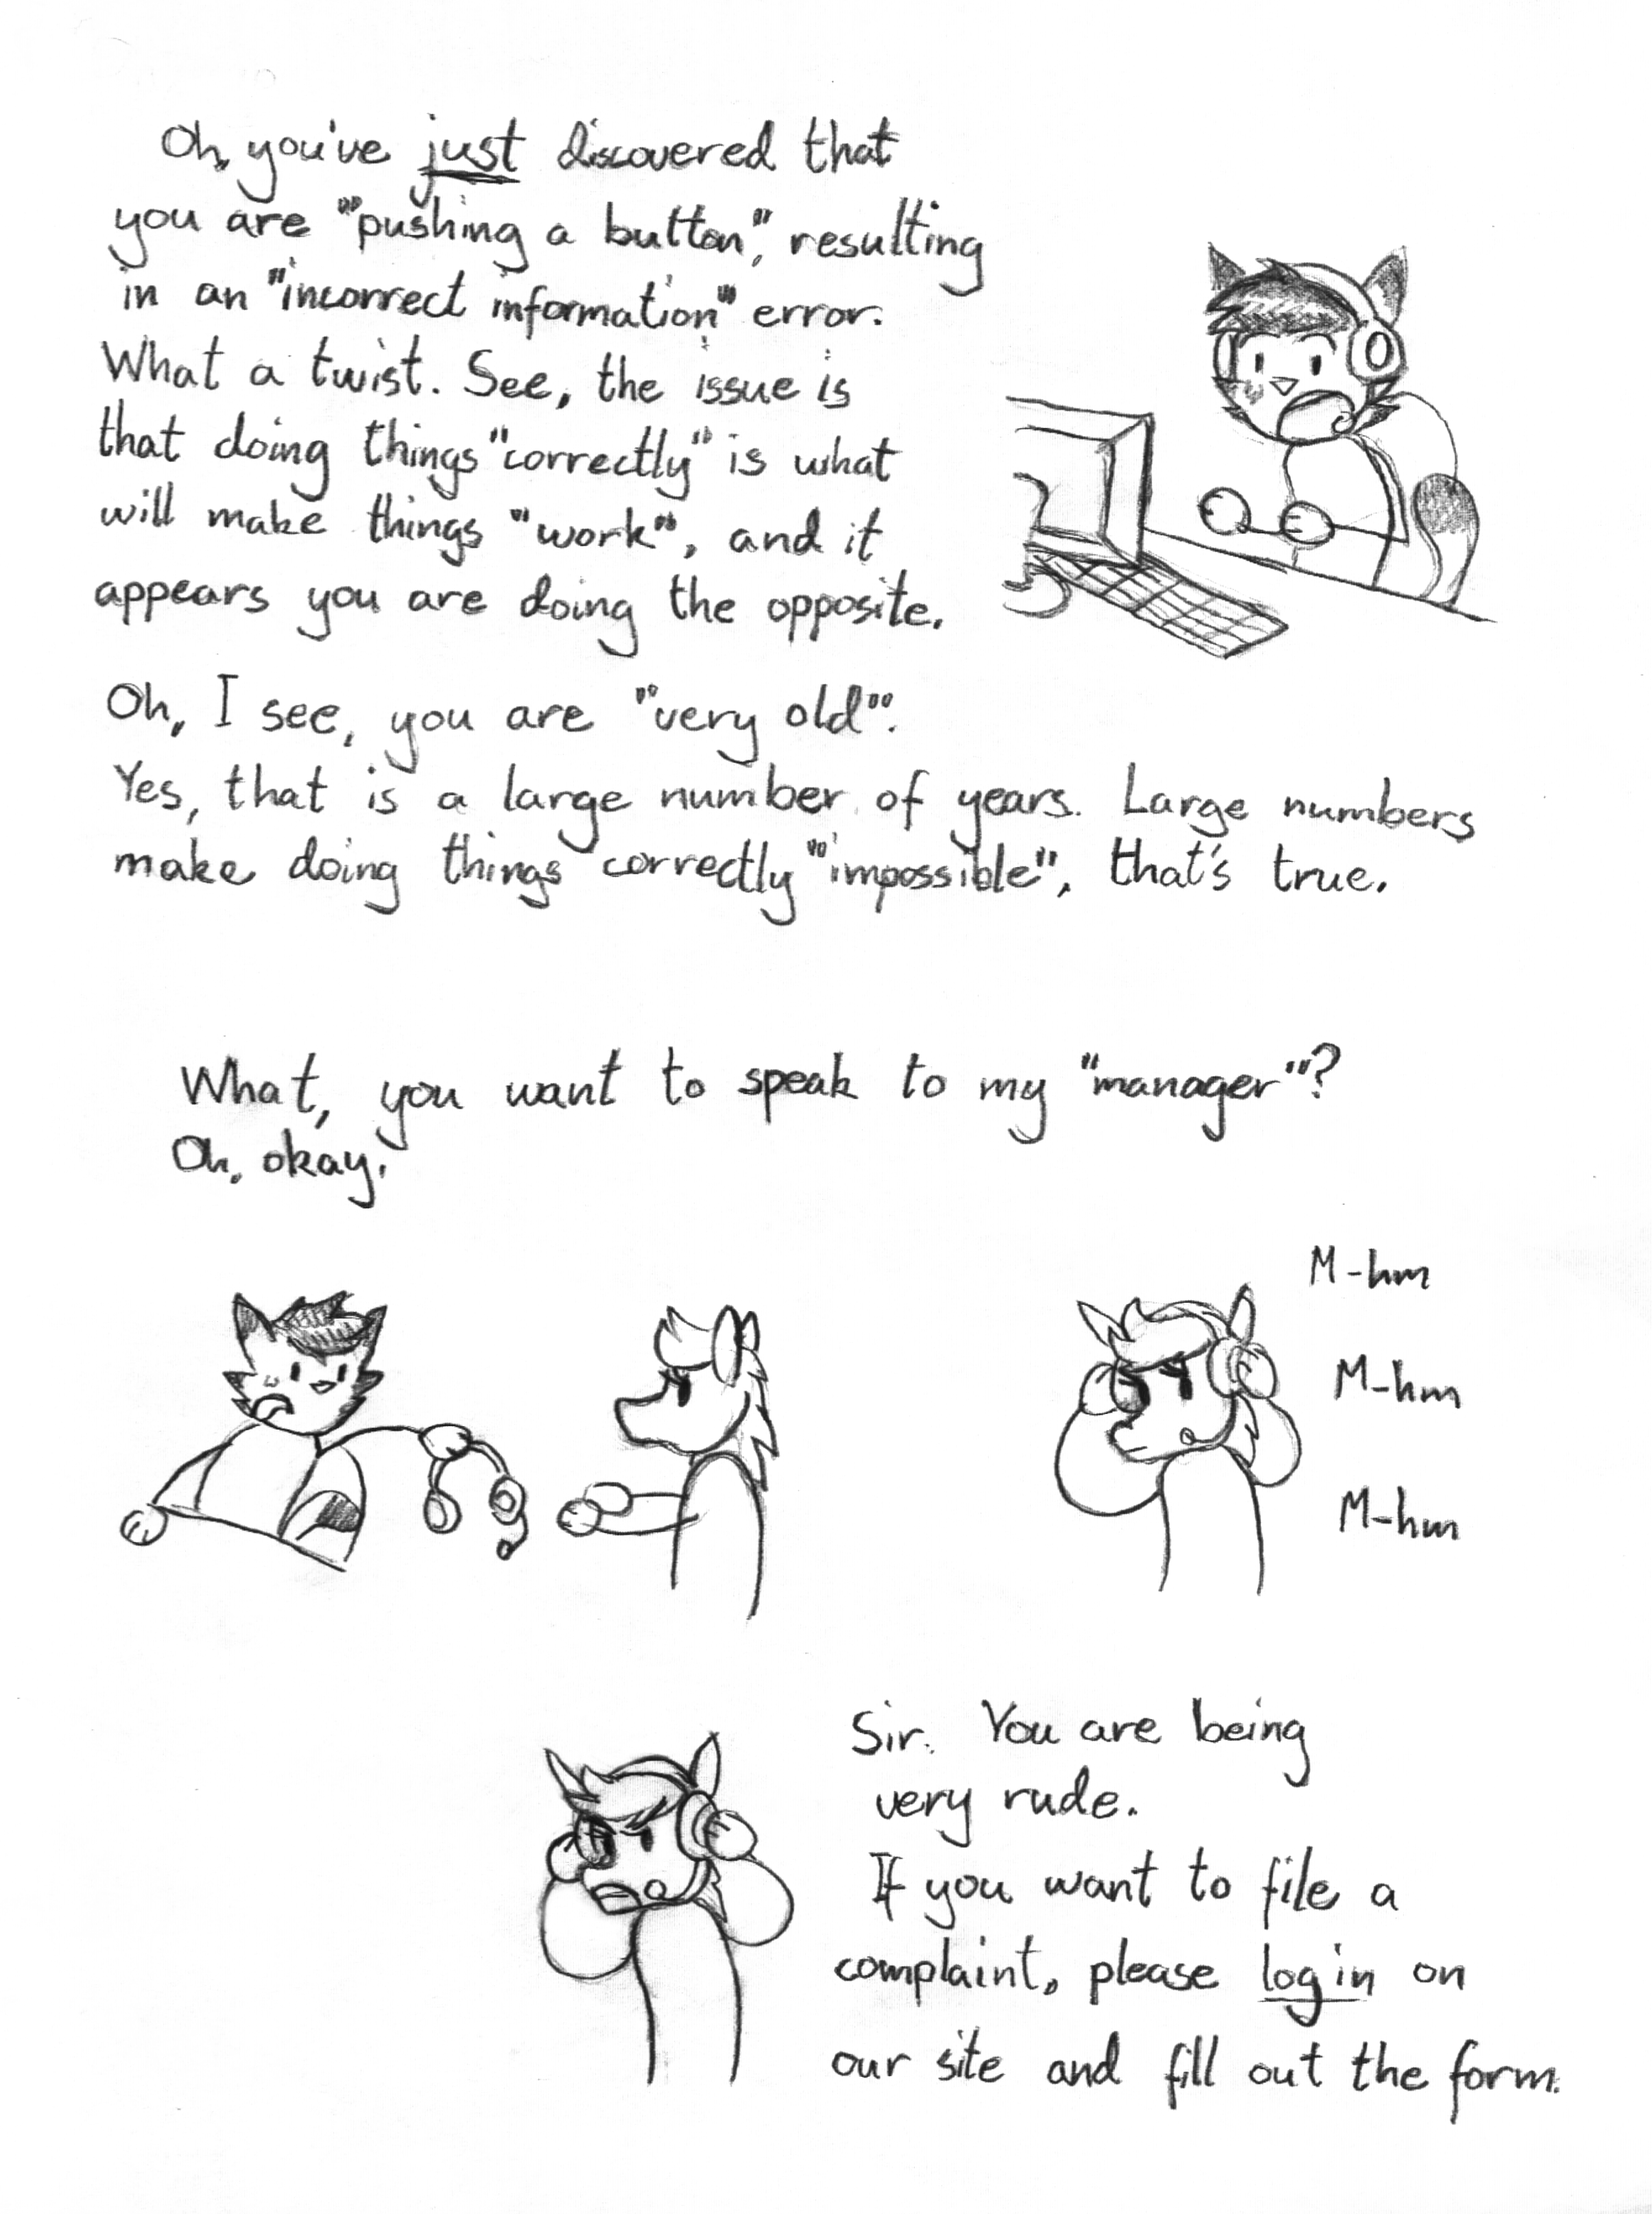 Oh, you've just discovered that
you are "pushing a button", resulting
in an "incorrect information" error.
What a twist. See, the issue is
that doing things "correctly" is what
will make things "work", and it
appears you are doing the opposite.
Oh, I see, you are "very old".
Yes, that is a large number of years. Large numbers
make doing things correctly "impossible", that's true.
What, you want to speak to my "manager"?
Oh, okay.
M-hm
M-hm
M-hm
Sir. You are being
very rude.
If you want to file a
complaint, please log in on
our site and fill out the form.